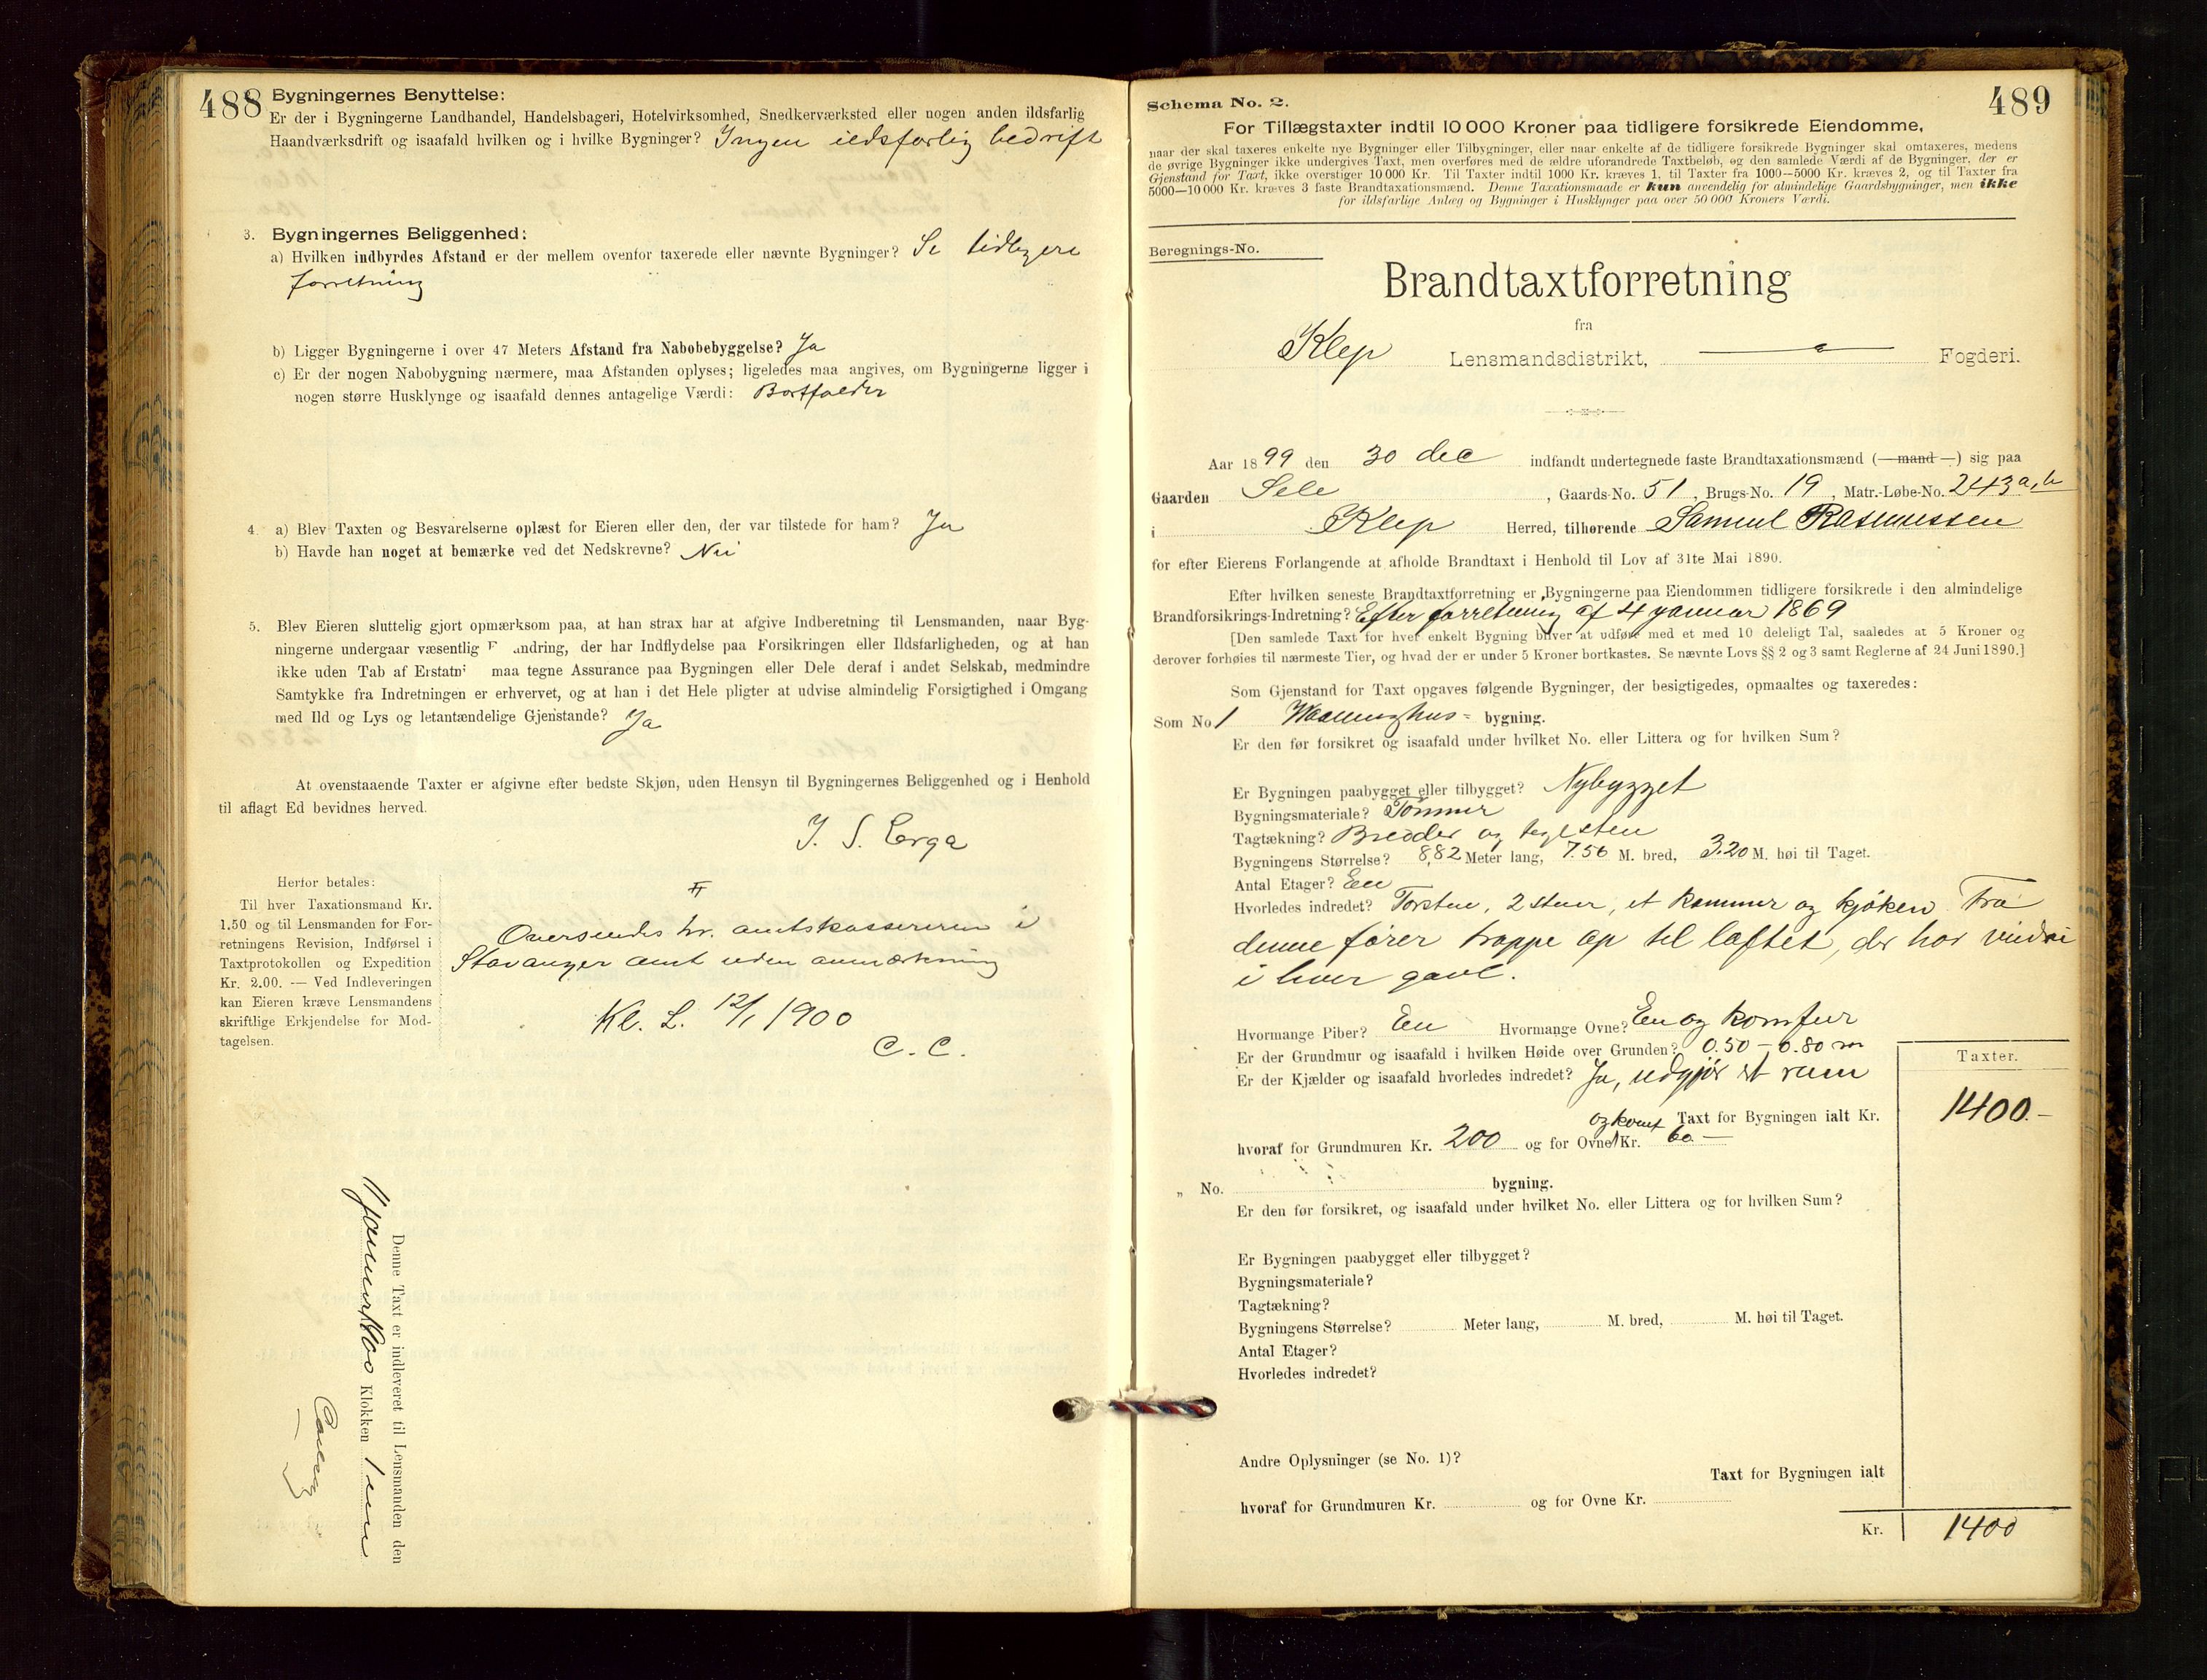 488
Bygningernes Benyttelse:
Er der i Bygningerne Landhandel, Handelsbageri, Hotelvirksomhed, Snedkerværksted eller nogen anden ildsfarlig
Haandværksdrift og isaafald hvilken og i hvilke Bygninger? Ingen ildsfarlig bedrift
3. Bygningernes Beliggenhed:
a) Hvilken indbyrdes Afstand er der mellem ovenfor taxerede eller nævnte Bygninger? Se tidligere
forretning
b) Ligger Bygningerne i over 47 Meters Afstand fra Nabobebyggelse? Ja
c) Er der nogen Nabobygning nærmere, maa Afstanden oplyses; ligeledes maa angives, om Bygningerne ligger i
nogen større Husklynge og isaafald dennes antagelige Værdi: Bortfalder
4. a) Blev Taxten og Besvarelserne oplæst for Eieren eller den, der var tilstede for ham? Ja
b) Havde han noget at bemærke ved det Nedskrevne? Nei
5. Blev Eieren sluttelig gjort opmærksom paa, at han strax har at afgive Indberetning til Lensmanden, naar Byg-
ningerne undergaar væsentlig F andring, der har Indflydelse paa Forsikringen eller Ildsfarligheden, og at han
ikke uden Tab af Erstatni maa tegne Assurance paa Bygningen eller Dele deraf i andet Selskab, medmindre
Samtykke fra Indretningen er erhvervet, og at han i det Hele pligter at udvise almindelig Forsigtighed i Omgang
med Ild og Lys og letantændelige Gjenstande? Ja
At ovenstaaende Taxter er afgivne efter bedste Skjøn, uden Hensyn til Bygningernes Beliggenhed og i Henhold
til aflagt Ed bevidnes herved.
J. S. Erga
Herfor betales:
Til hver Taxationsmand Kr.
1.50 og til Lensmanden for For-
retningens Revision, Indførsel i
Taxtprotokollen og Expedition
Kr. 2.00. — Ved Indleveringen
kan Eieren kræve Lensmandens
skriftlige Erkjendelse for Mod-
tagelsen.
Oversendes hr. amtskassereren i
Stavanger amt uden anmærkning
Kl. L. 12/1 1900
C. C.
Denne Taxt er indleveret til Lensmanden den
11 januar 1900 Klokken 1 em
489
Schema No. 2.
For Tillægstaxter indtil 10 000 Kroner paa tidligere forsikrede Eiendomme,
naar der skal taxeres enkelte nye Bygninger eller Tilbygninger, eller naar enkelte af de tidligere forsikrede Bygninger skal omtaxeres, medens
de øvrige Bygninger ikke undergives Taxt, men overføres med de ældre uforandrede Taxtbeløb, og den samlede Værdi af de Bygninger, der er
Gjenstand for Taxt, ikke overstiger 10 000 Kr. Til Taxter indtil 1000 Kr. kræves 1, til Taxter fra 1000—5000 Kr. kræves 2, og til Taxter fra
5000—10 000 Kr. kræves 3 faste Brandtaxationsmænd. Denne Taxationsmaade er kun anvendelig for almindelige Gaardsbygninger, men ikke
for ildsfarlige Anlæg og Bygninger i Husklynger paa over 50 000 Kroners Værdi.
Beregnings-No.
Brandtaxtforretning
fra
Klep Lensmandsdistrikt, Fogderi.
Aar 1899 den 30 dec indfandt undertegnede faste Brandtaxationsmænd (—mand—) sig paa
Gaarden Sele, Gaards-No. 51, Brugs-No. 19, Matr.-Løbe-No. 243 a, b
i Klep Herred, tilhørende Samuel Rasmussen
for efter Eierens Forlangende at afholde Brandtaxt i Henhold til Lov af 31te Mai 1890.
Efter hvilken seneste Brandtaxtforretning er Bygningerne paa Eiendommen tidligere forsikrede i den almindelige
Brandforsikrings-Indretning? Efter forretning af 4 januar 1869
[Den samlede Taxt for hver enkelt Bygning bliver at udføre med et med 10 deleligt Tal, saaledes at 5 Kroner og
derover forhøies til nærmeste Tier, og hvad der er under 5 Kroner bortkastes. Se nævnte Lovs §§ 2 og 3 samt Reglerne af 24 Juni 1890.]
Som Gjenstand for Taxt opgaves følgende Bygninger, der besigtigedes, opmaaltes og taxeredes:
Som No 1 Vaaninghus- bygning.
Er den før forsikret og isaafald under hvilket No. eller Littera og for hvilken Sum?
Er Bygningen paabygget eller tilbygget? Nybygget
Bygningsmateriale? Tømmer
Tagtækning? Bredder og teglsten
Bygningens Størrelse? 8,82 Meter lang, 7.56 M. bred, 3.20 M. høi til Taget.
Antal Etager? En
Hvorledes indredet? Forstue, 2 stuer, et kammer og kjøken. Fra
denne fører trappe op til loftet, der har vindu
i hver gavl.
Hvormange Piber? En Hvormange Ovne? En og komfur
Er der Grundmur og isaafald i hvilken Høide over Grunden? 0.50 — 0.80 m
Er der Kjælder og isaafald hvorledes indredet? Ja, udgjør et rum
Taxter.
Taxt for Bygningen ialt Kr. 1400.-
og komf
hvoraf for Grundmuren Kr. 200 og for Ovne Kr. 60 —
„ No. bygning.
Er den før forsikret, og isaafald under hvilket No. eller Littera og for hvilken Sum?
Er Bygningen paabygget eller tilbygget?
Bygningsmateriale?
Tagtækning?
Bygningens Størrelse? Meter lang, M. bred, M. høi til Taget.
Antal Etager?
Hvorledes indredet?
Andre Oplysninger (se No. 1)?
Taxt for Bygningen ialt
hvoraf for Grundmuren Kr. og for Ovne Kr.
Kr. 1400